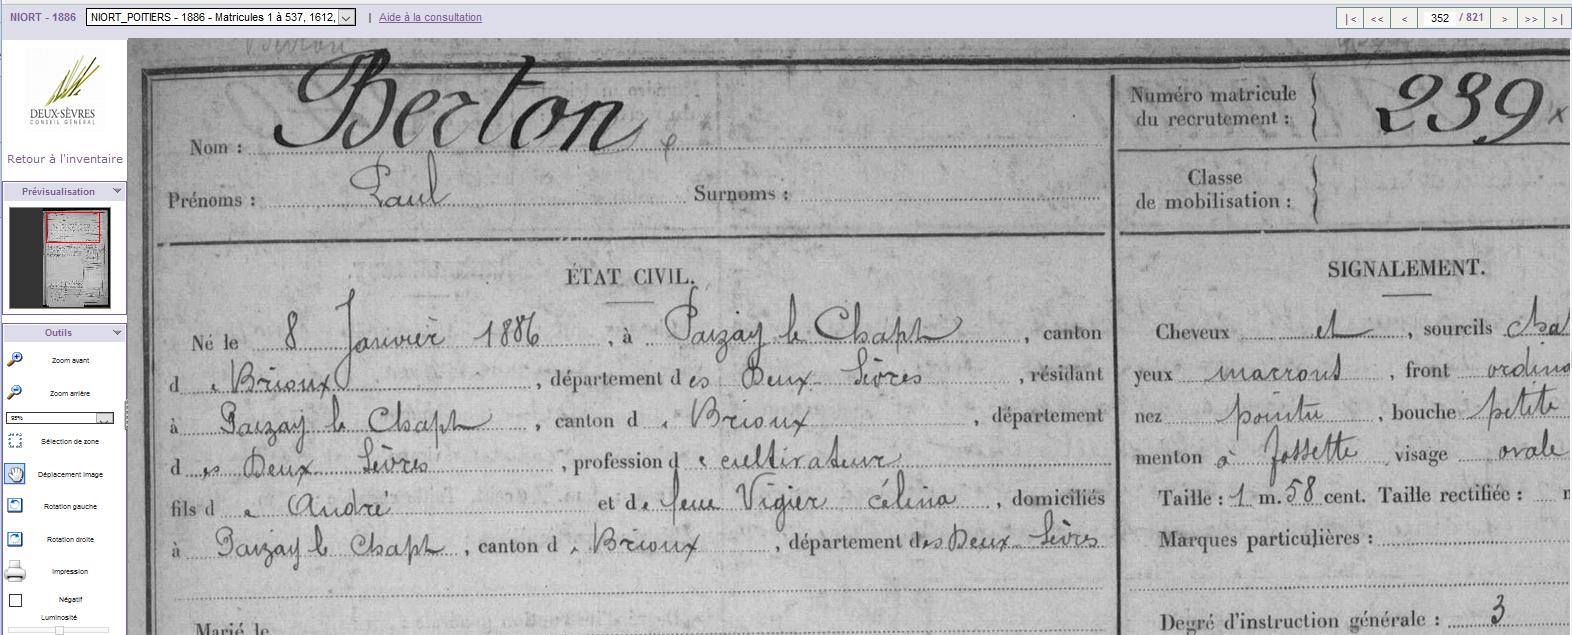 NIORT - 1886 NIORT_POITIERS - 1886 - Matricules 1 à 537, 1612, | Aide à la consultation |< << < 352 / 821 > >> >|
DEUX-SÈVRES
CONSEIL GÉNÉRAL
Retour à l'inventaire
Prévisualisation
Outils
Zoom avant
Zoom arrière
95%
Sélection de zone
Déplacement image
Rotation gauche
Rotation droite
Impression
Négatif
Luminosité
Nom : Berton
Prénoms : Paul Surnoms :
Numéro matricule
du recrutement : 239
Classe
de mobilisation :
ÉTAT CIVIL.
Né le 8 Janvier 1886, à Paizay le Chapt, canton
de Brioux, département des Deux Sèvres, résidant
à Paizay le Chapt, canton de Brioux, département
des Deux Sèvres, profession de cultivateur
fils de André et de feue Vigier Célina, domiciliés
à Paizay le Chapt, canton de Brioux, département des Deux Sèvres
Marié le
SIGNALEMENT.
Cheveux et, sourcils cha
yeux marrons, front ordina
nez pointu, bouche petite
menton à fossette, visage ovale
Taille : 1 m. 58 cent. Taille rectifiée :
Marques particulières :
Degré d'instruction générale : 3